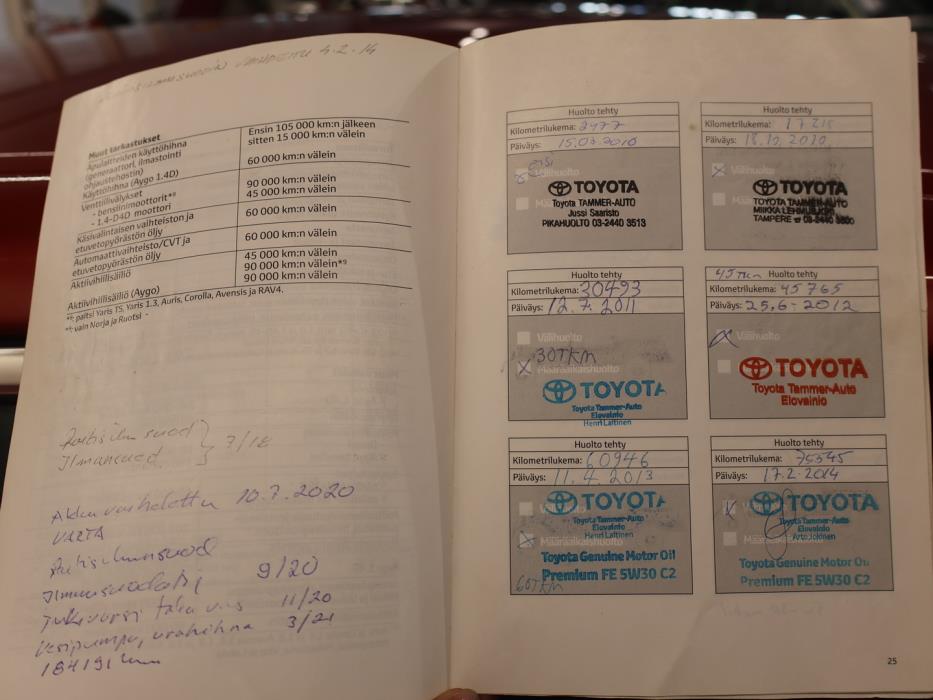 VAIHDETTU 4.2.14
Muut tarkastukset
Apulaitteiden käyttöhihna
(generaattori, ilmastointi
ohjaustehostin)
Käyttöhihna (Aygo 1.4D)
Ensin 105 000 km:n jälkeen
sitten 15 000 km:n välein
60 000 km:n välein
Venttiilivälykset
- bensiinimoottorit*⁸
- 1.4-D4D moottori
90 000 km:n välein
45 000 km:n välein
Käsivalintaisen vaihteiston ja
etuvetopyörästön öljy
60 000 km:n välein
Automaattivaihteisto/CVT ja
etuvetopyörästön öljy
60 000 km:n välein
Aktiivihiilisäiliö
45 000 km:n välein
90 000 km:n välein*⁹
Aktiivihiilisäiliö (Aygo)
90 000 km:n välein
*⁸: paitsi Yaris TS, Yaris 1.3, Auris, Corolla, Avensis ja RAV4.
*⁹: vain Norja ja Ruotsi
Raitisilmasuod
Ilmansuod. } 7/18
Akku vaihdettu 10.7.2020
VARTA
Raitisilmansuod
Ilmansuodatin 9/20
Jakovarsi taka 11/20
Vesipumppu, urahihna 3/21
184191 km
Huolto tehty
Kilometrilukema: 2477
Päiväys: 15.03.2010
ensi
TOYOTA
Toyota TAMMER-AUTO
Jussi Saaristo
PIKAHUOLTO 03-2440 3513
Huolto tehty
Kilometrilukema: 17218
Päiväys: 18.10.2010
TOYOTA
TOYOTA TAMMER-AUTO
MIIKKA
TAMPERE ☎ 03-2440
Huolto tehty
Kilometrilukema: 30493
Päiväys: 12.7.2011
Välihuolto
30TKM
Määräaikaishuolto
TOYOTA
Toyota Tammer-Auto
Elovainio
Henri Laitinen
45TKM Huolto tehty
Kilometrilukema: 45765
Päiväys: 25.6-2012
TOYOTA
Toyota Tammer-Auto
Elovainio
Huolto tehty
Kilometrilukema: 60946
Päiväys: 11.4.2013
TOYOTA
Toyota Tammer-Auto
Elovainio
Henri Laitinen
Määräaikaishuolto
Toyota Genuine Motor Oil
Premium FE 5W30 C2
60TKM
Huolto tehty
Kilometrilukema: 75545
Päiväys: 17.2.2014
TOYOTA
Toyota Tammer-Auto
Elovainio
Arto Jokinen
Toyota Genuine Motor Oil
Premium FE 5W30 C2
25